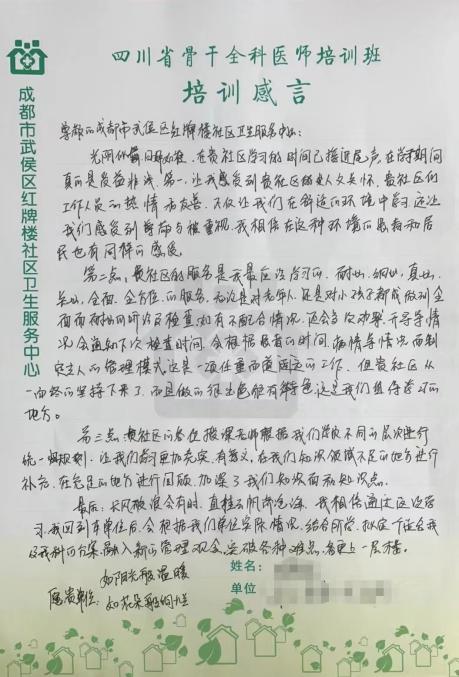 成都市武侯区红牌楼社区卫生服务中心
四川省骨干全科医师培训班
培训感言
尊敬的成都市武侯区红牌楼社区卫生服务中心:
光阴似箭日月如梭,在贵社区学习的时间已接近尾声,在学习期间
真的是受益非浅。第一,让我感受到贵社区的人文关怀,贵社区的
工作人员的热情和友善,不仅让我们在舒适的环境中学习还让
我们感受到尊敬与被重视,我相信在这种环境的患者和居
民也有同样的感受。
第二点,贵社区的服务是我最应该学习的,耐心,细心,真心,
关心,全面,全方位的服务,无论是对老年人还是对小孩子都能做到全
面而耐心的听诊及检查,如有不配合情况,还会多次劝聚,
会通知下次检查时间,会根据患者的时间,病情等情况而制
定主人的管理模式这是一项任重而道远的工作,但贵社区从
一而终的坚持下来了,而且做的很出色能有特色这是我们值得学习的
地方。
第三点,贵社区的各位授课老师根据我们学校不同的层次进行
统一规划,让我们学习更加充实,有意义,在我们知识领域不足的地方进行
补充,在充足的地方进行巩固,加深了我们知识面和知识点。
最后:长风破浪会有时,直挂云帆济沧海。我相信通过这次学
习,我回到本单位后,会根据我们单位实际情况,结合所学,拟定个适合我
及我科的方案融入新的管理观念,突破各种难点,争更上一层楼。
如阳光般温暖
愿贵单位:如花朵般的
姓名:
单位